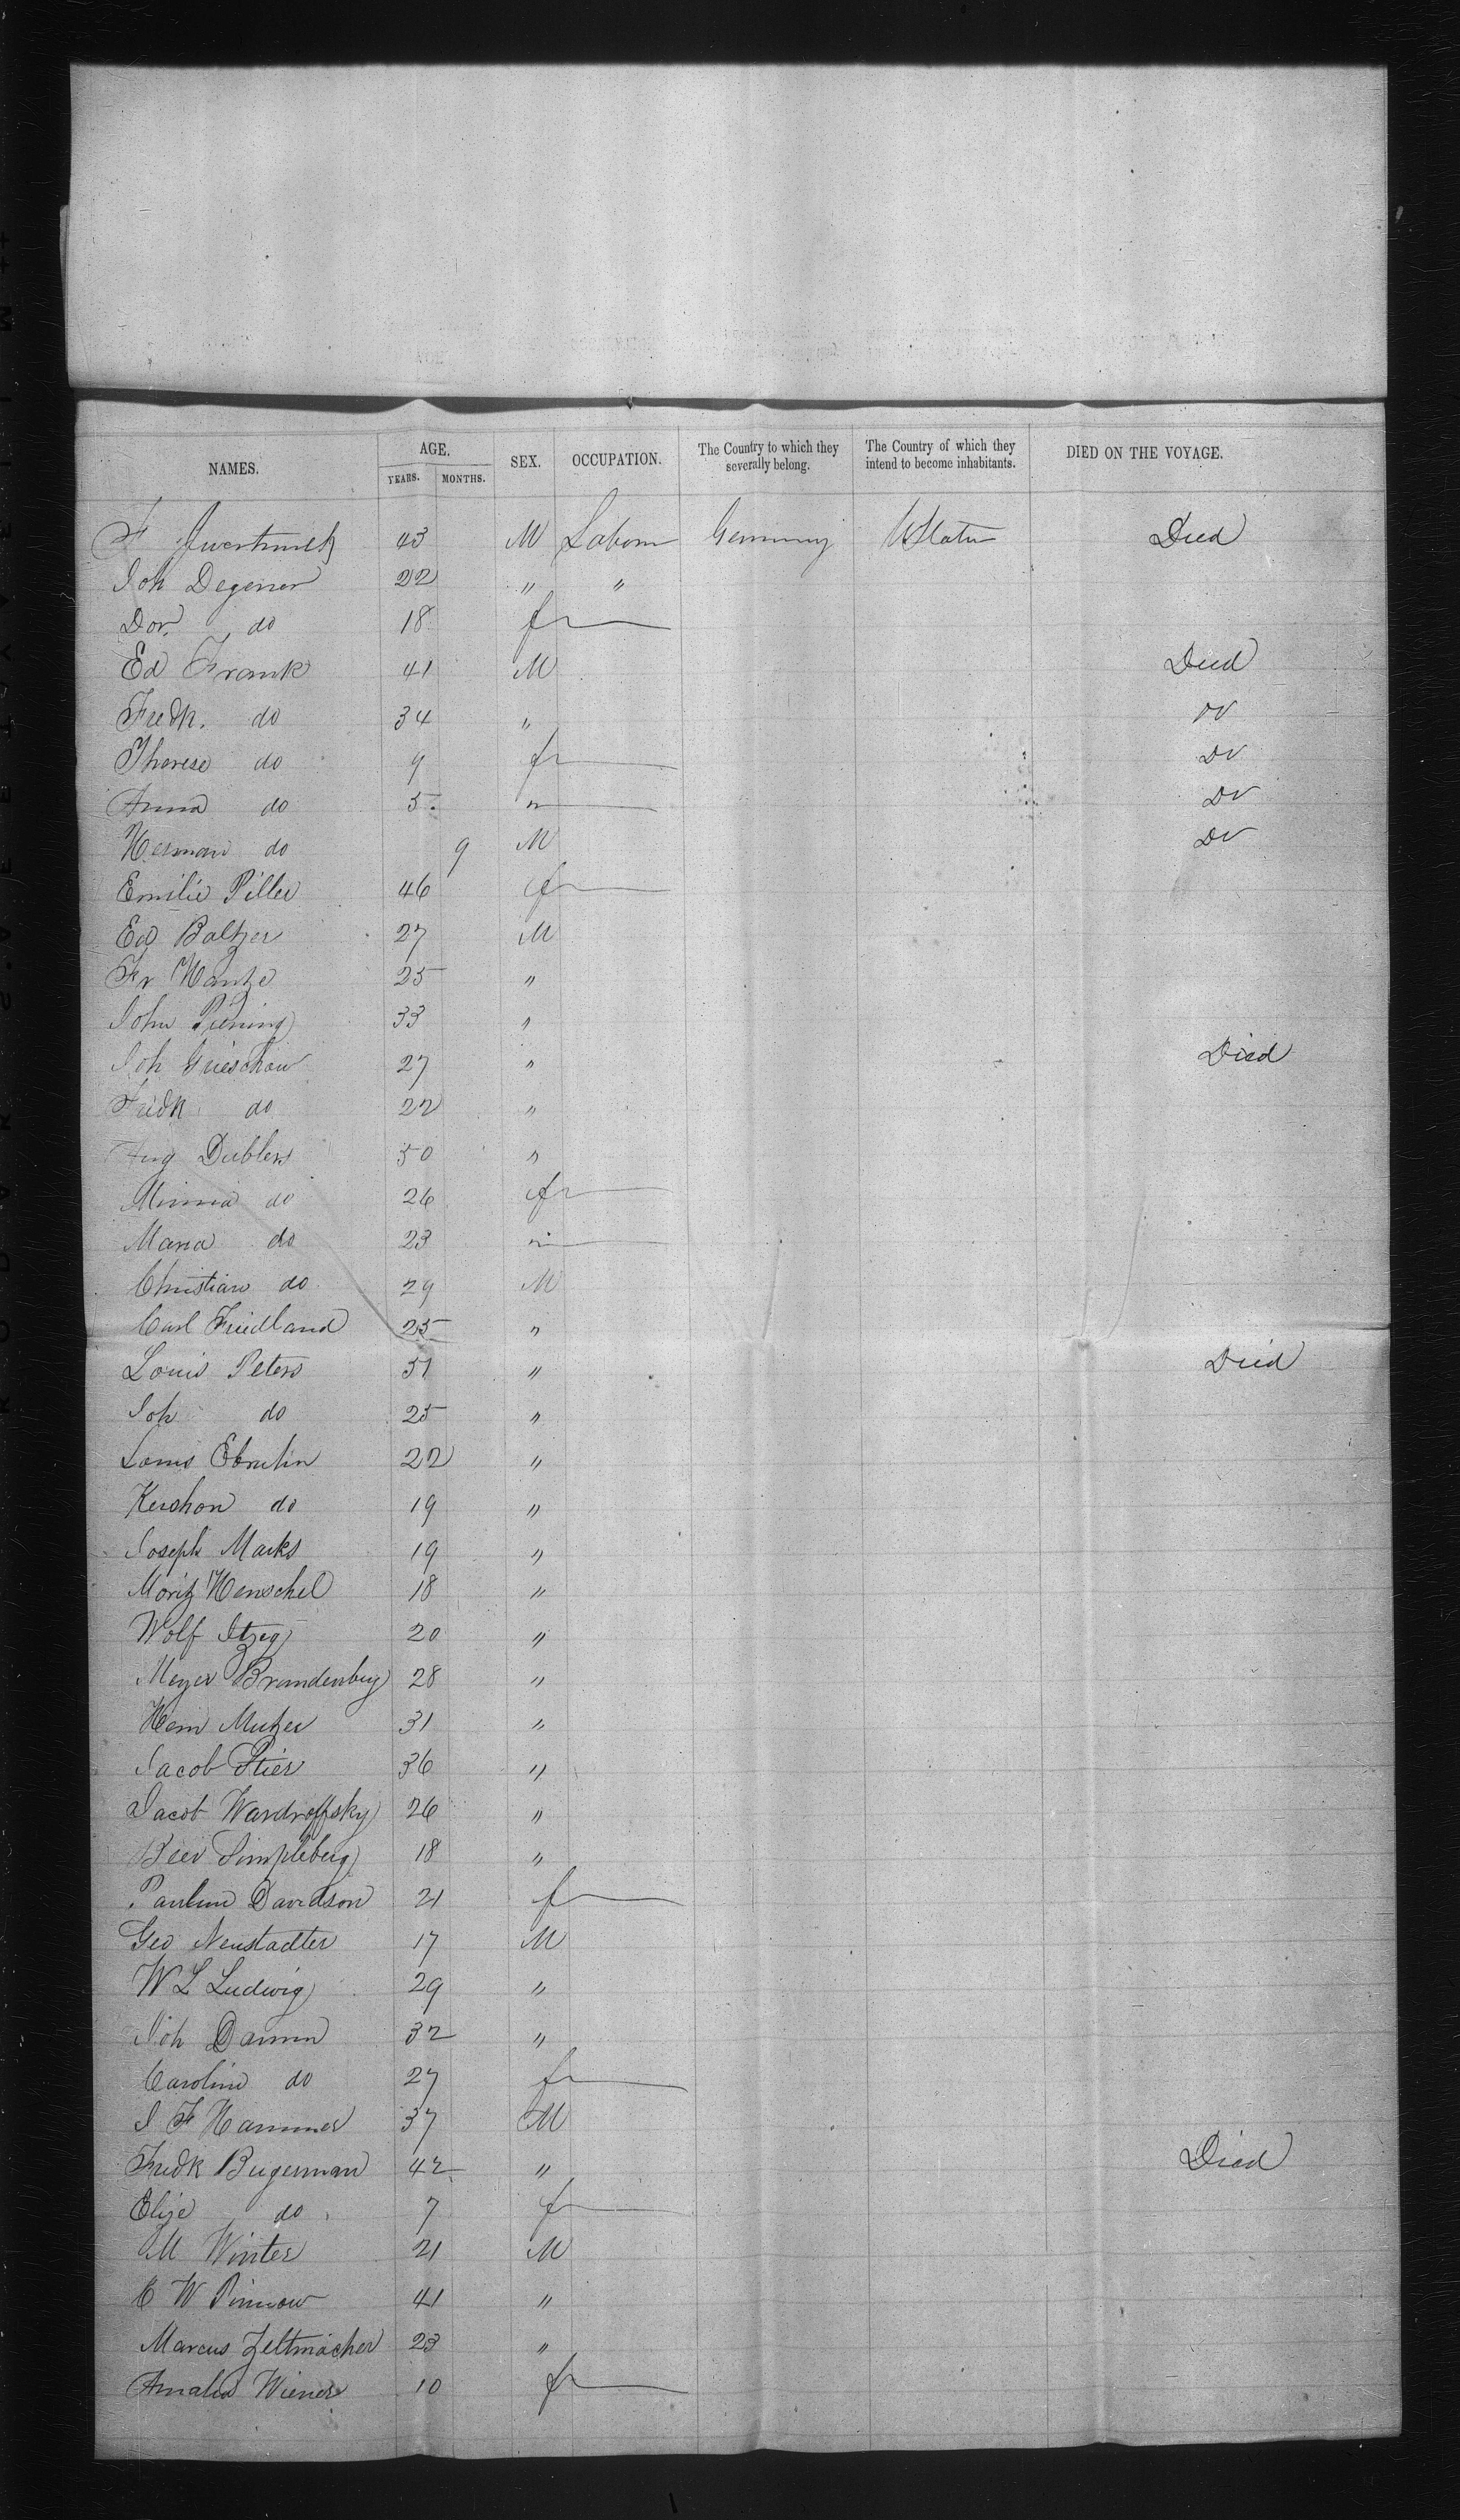 NAMES. AGE. YEARS. MONTHS. SEX. OCCUPATION. The Country to which they severally belong. The Country of which they intend to become inhabitants. DIED ON THE VOYAGE.
F 43 M Laborer Germany UStates Died
Joh Degener 22 " "
Dor. do 18 f
Ed Frank 41 M Died
Fredk. do 34 " Do
Therese do 9 f Do
Anna do 5 " Do
Herman do 9 M Do
Emilie Piller 46 f
Ed Baltzer 27 M
Fr Hantze 25 "
John Piening 33 "
Joh Grieschow 27 " Died
Fredk do 22 "
Aug Dublers 50 "
Minna do 26 f
Maria do 23 "
Christian do 29 M
Carl Friedland 25 "
Louis Peters 51 " Died
Joh do 25 "
Louis 22 "
Kershon do 19 "
Joseph Marks 19 "
Moritz Henschel 18 "
Wolf Itzeg 20 "
Meyer Brandenburg 28 "
Herm Mutzer 31 "
Jacob Stier 36 "
Jacob Wardroffsky 26 "
Beer Simpleberg 18 "
Pauline Davidson 21 f
Geo Neustadter 17 M
W L Ludwig 29 "
Joh Damm 32 "
Caroline do 27 f
J F Hammer 37 M
Fredk Bugerman 42 " Died
Elise do 7 f
M Winter 21 M
C W Pinnow 41 "
Marcus Zeltmacher 23 "
Amalia Wiener 10 f